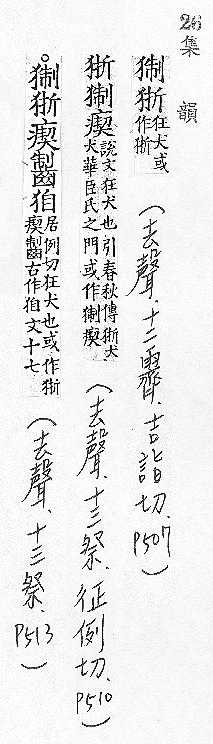 26集韻
猘狾狂犬或作狾（去聲．十二霽．吉詣切．P507）
狾猘瘈說文狂犬也引春秋傳狾犬入華臣氏之門或作猘瘈（去聲．十三祭．征例切．P510）
。猘狾瘈狛居例切狂犬也或作狾瘈古作狛文十七（去聲．十三祭．P513）